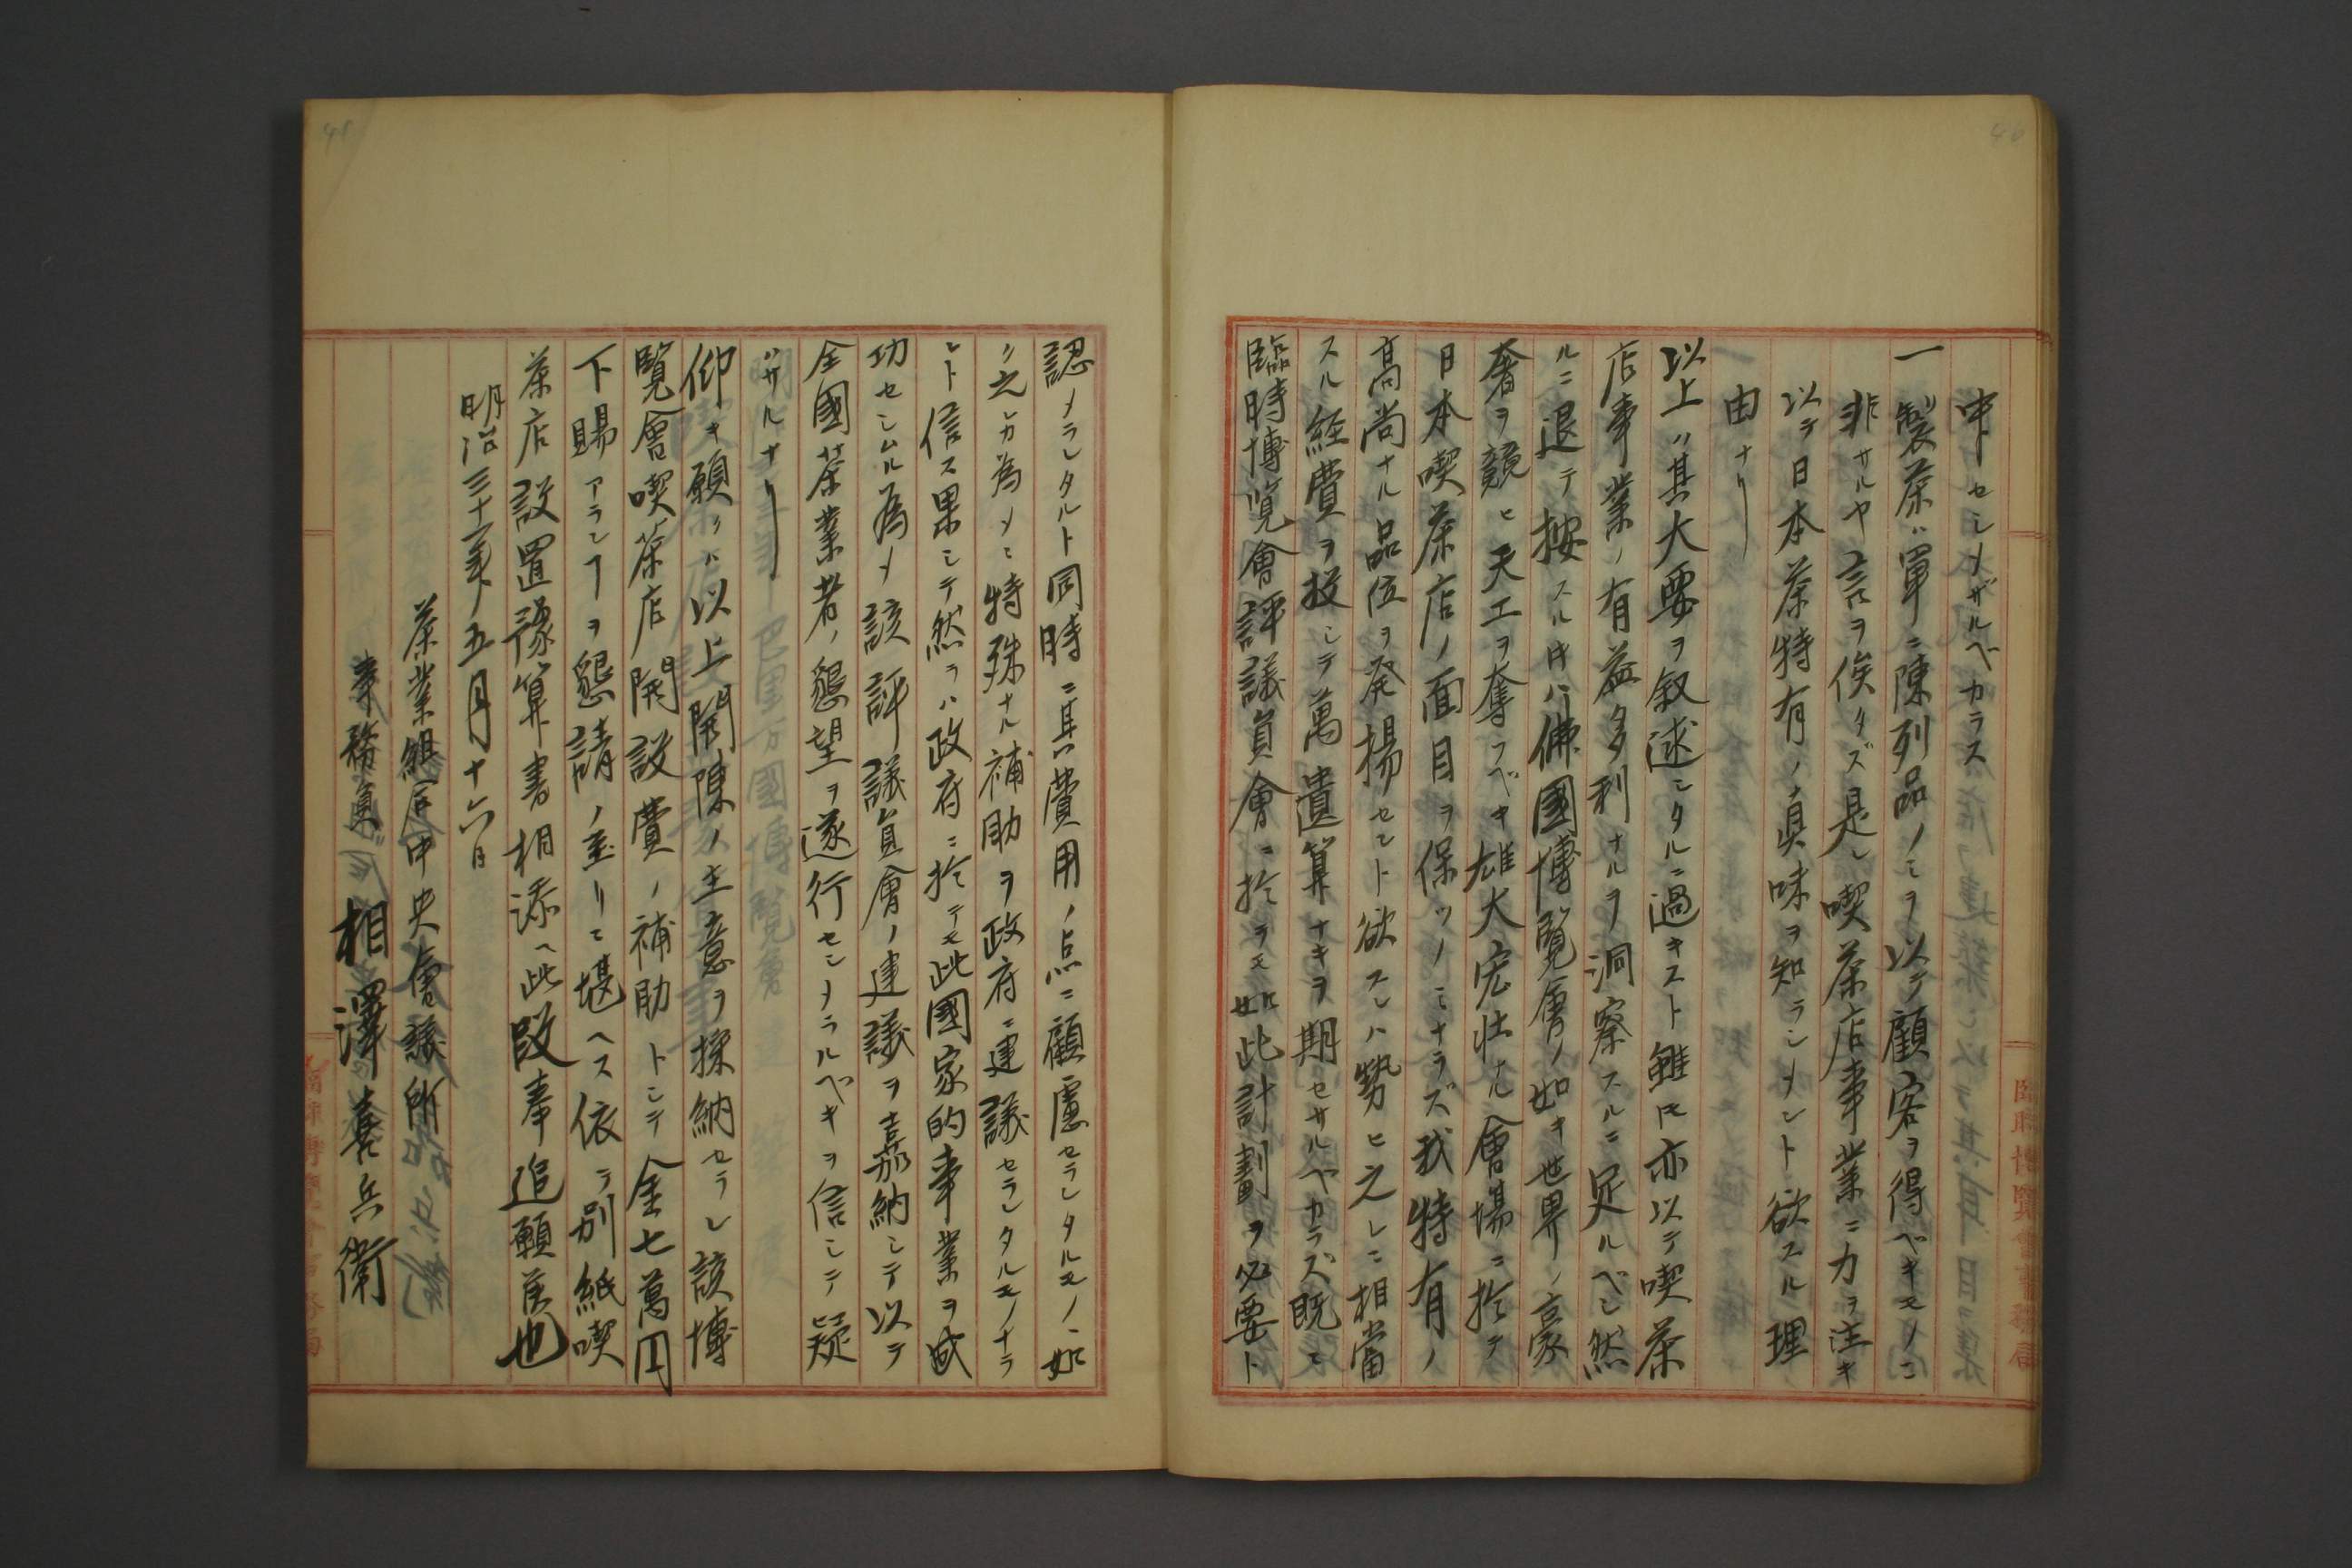 中セシメザルベカラス
一製茶ハ單ニ陳列品ノミヲ以テ顧客ヲ得ベキモノニ
非サルヤ言ヲ俟タズ是レ喫茶店事業ニ力ヲ注キ
以テ日本茶特有ノ真味ヲ知ラシメント欲スル理
由ナリ
以上ハ其大要ヲ叙述シタルニ過キスト雖モ亦以テ喫茶
店事業ノ有益多利ナルヲ洞察スルニ足ルベシ然
ルニ退テ按スルトキハ佛國博覧會ノ如キ世界ノ豪
奢ヲ競ヒ天工ヲ奪フベキ雄大宏壮ナル會場ニ於テ
日本喫茶店ノ面目ヲ保ツノミナラズ我特有ノ
高尚ナル品位ヲ発揚セント欲スレハ勢ヒ之レニ相當
スル経費ヲ投シテ萬遺算ナキヲ期セサルヘカラズ既ニ
臨時博覧會評議員會ニ於テモ如此計劃ヲ必要ト
認メラレタルト同時ニ其費用ノ点ニ顧慮セラレタルモノヽ如
ク之レカ為メニ特殊ナル補助ヲ政府ニ建議セラレタルモノナラ
ント信ス果シテ然ラハ政府ニ於テモ此國家的事業ヲ成
功セシムル為メ該評議員會ノ建議ヲ嘉納シテ以テ
全國茶業者ノ懇望ヲ遂行セシメラルベキヲ信シテ疑
ハサルナリ
仰キ願クハ以上開陳ノ主意ヲ採納セラレ該博
覧會喫茶店開設費ノ補助トシテ金七萬円
下賜アランヿヲ懇請ノ至リニ堪ヘス依テ別紙喫
茶店設置豫算書相添ヘ此段奉追願候也
明治三十一年五月十六日
茶業組合中央會議所
事務員
相澤喜兵衛
臨時博覧會事務局